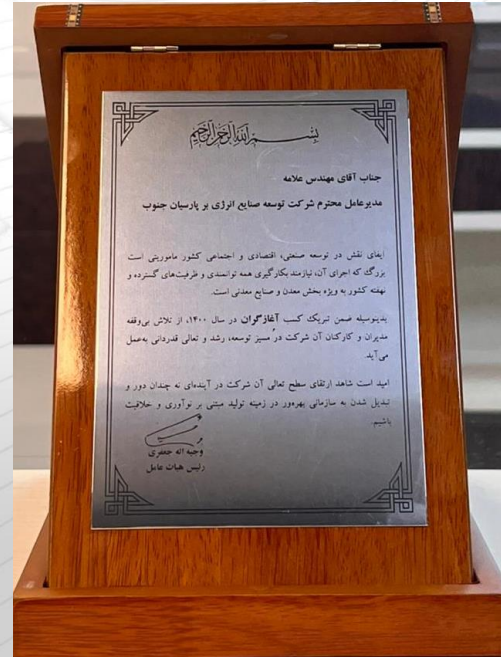 بسم الله الرحمن الرحیم
جناب آقای مهندس علامه
مدیرعامل محترم شرکت توسعه صنایع انرژی بر پارسیان جنوب
ایفای نقش در توسعه صنعتی، اقتصادی و اجتماعی کشور ماموریتی است
بزرگ که اجرای آن، نیازمند بکارگیری همه توانمندی و ظرفیت‌های گسترده و
نهفته کشور به ویژه بخش معدن و صنایع معدنی است.
بدینوسیله ضمن تبریک کسب آغازگران در سال ۱۴۰۰، از تلاش بی‌وقفه
مدیران و کارکنان آن شرکت در مسیر توسعه، رشد و تعالی قدردانی به‌عمل
می‌آید.
امید است شاهد ارتقای سطح تعالی آن شرکت در آینده‌ای نه چندان دور و
تبدیل شدن به سازمانی بهره‌ور در زمینه تولید مبتنی بر نوآوری و خلاقیت
باشیم.
وجیه اله جعفری
رئیس هیات عامل